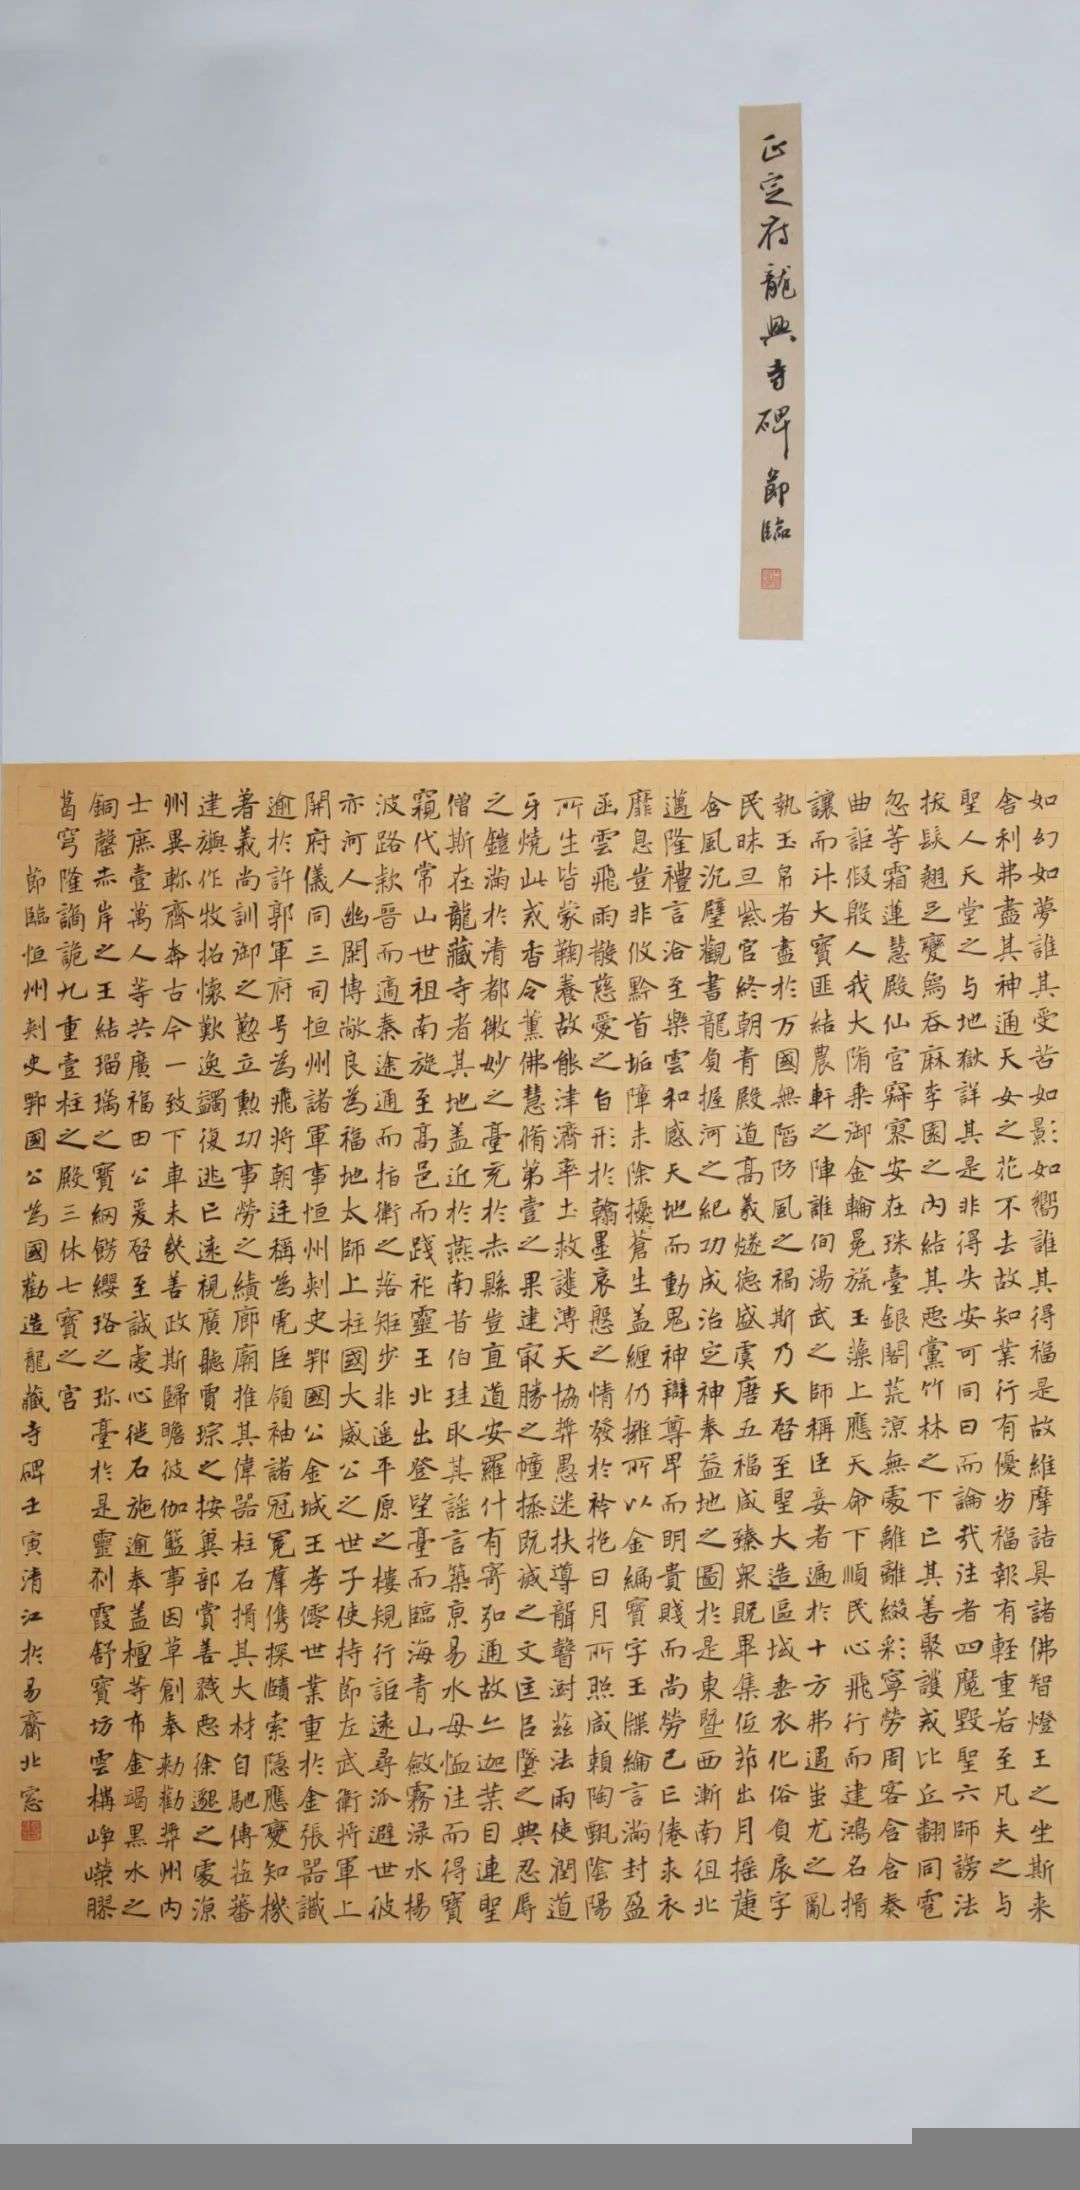 正定府龍興寺碑節臨
如幻如夢誰其受苦如影如嚮誰其得福是故維摩詰具諸佛智燈王之坐斯来
舍利弗盡其神通天女之花不去故知業行有優劣福報有輕重若至凡夫之与
聖人天堂之与地獄詳其是非得失安可同日而論㢤注者四魔毀聖六師謗法
拔髮翹足變象吞麻李園之內結其惡黨竹林之下亡其善聚護戒比丘翻同雹
忽等霜蓮慧殿仙宮寂寞安在珠臺銀閣荒涼無處離離綴彩寧勞周客含含奏
曲詎假殷人我大隋乘御金輪冕旒玉藻上應天命下順民心飛行而建鴻名揖
讓而升大寶匪結農軒之陣誰伺湯武之師稱臣妾者遍於十方弗遇蚩尤之亂
執玉帛者盡於万國無陷防風之禍斯乃天啓至聖大造區域垂衣化俗負扆字
民昧旦紫宮終朝青殿道高羲燧德盛虞唐五福咸臻衆貺畢集伍莭出月摇蓮
含風沉璧觀書龍負握河之紀功成治定神奉益地之圖於是東暨西漸南徂北
邁隆禮言洽至樂雲和感天地而動鬼神辯尊卑而明貴賤而尚勞己亡倦求衣
靡息豈非攸黔首垢障未除擾蒼生盖纏仍擁所以金編寶字玉牒綸言滿封盈
函雲飛雨散慈愛之旨形於翰墨哀慇之情發於衿抱日月所照咸賴陶甄陰陽
所生皆蒙鞠養故能津濟率土救護溥天協奨愚迷扶導聾瞽澍兹法雨使潤道
牙燒此戒香令薰佛慧脩第壹之果建寂勝之幢拯既滅之文匡已墜之典忍辱
之鎧滿於清都微妙之臺充於赤縣豈直道安羅什有寄弘通故亦迦葉目連聖
僧斯在龍藏寺者其地盖近於燕南昔伯珪取其謡言築京易水母恤往而得寶
窺代常山世祖南旋至高邑而踐祚靈王北出登望臺而臨海青山斂霧渌水揚
波路款晋而適秦途通而指衛之落矩步非遥平原之樓規行詎遠尋泒避世彼
亦河人幽閑博敞良為福地太師上柱國大威公之世子使持節左武衛將軍上
開府儀同三司恒州諸軍事恒州刾史鄂國公金城王孝僊世業重於金張器識
逾於許郭軍府号為飛將朝廷稱為虎臣領袖諸冠冕羣儁探賾索隱應變知機
著義尚訓御之懃立勳功事勞之績廊廟推其偉器柱石揖其大材自馳傳莅蕃
建旟作牧招懷歎逸蠲復逃亡遠視廣聽賈琮之按冀部賞善戮惡徐邈之處涼
州異軫齊奔古今一致下車未幾善政斯歸瞻彼伽籃事因草創奉勑勸奨州內
士庶壹萬人等共廣福田公爰啓至誠虔心徙石施逾奉盖檀等布金竭黑水之
銅罄赤岸之王結瑠璃之寶網餝纓珞之珎臺於是靈刹霞舒寶坊雲構崢嶸膠
葛穹隆譎詭九重壹柱之殿三休七寶之宮
節臨恒州刾史鄂國公為國勸造龍藏寺碑壬寅清江於易齋北窓